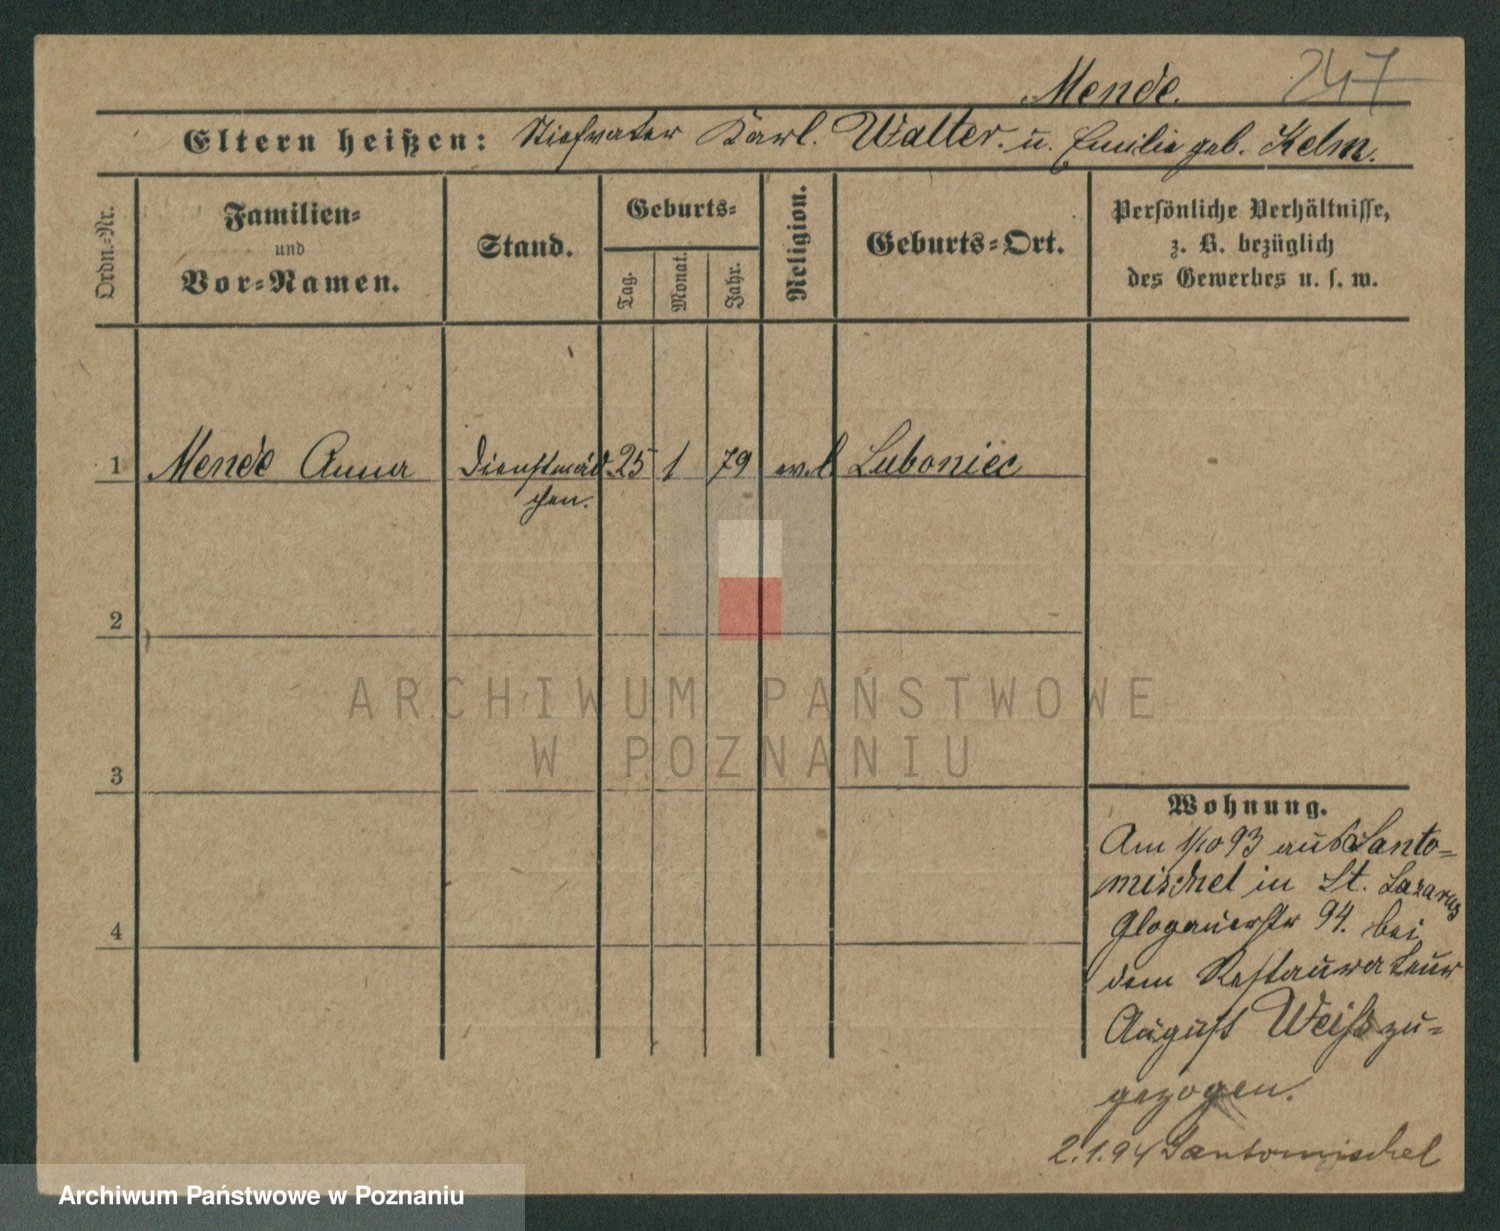 Mende. 247
Eltern heißen: Stiefvater Karl. Walter. u. Emilie geb. Kelm.
Ordn.-Nr.
Familien-
und
Vor-Namen.
Stand.
Geburts-
Tag.
Monat.
Jahr.
Religion.
Geburts-Ort.
Persönliche Verhältnisse,
z. B. bezüglich
des Gewerbes u. s. w.
1 Mende Anna Dienstmäd 25 1 79 ev. Luboniec
chen.
2
3
4
Wohnung.
Am 1/10 93 aus Santo-
mischel in St. Lazarus
Glogauerstr 94. bei
dem Restaurateur
August Weiß zu-
gezogen.
2.1.94 Santomischel
ARCHIWUM PAŃSTWOWE
W POZNANIU
Archiwum Państwowe w Poznaniu